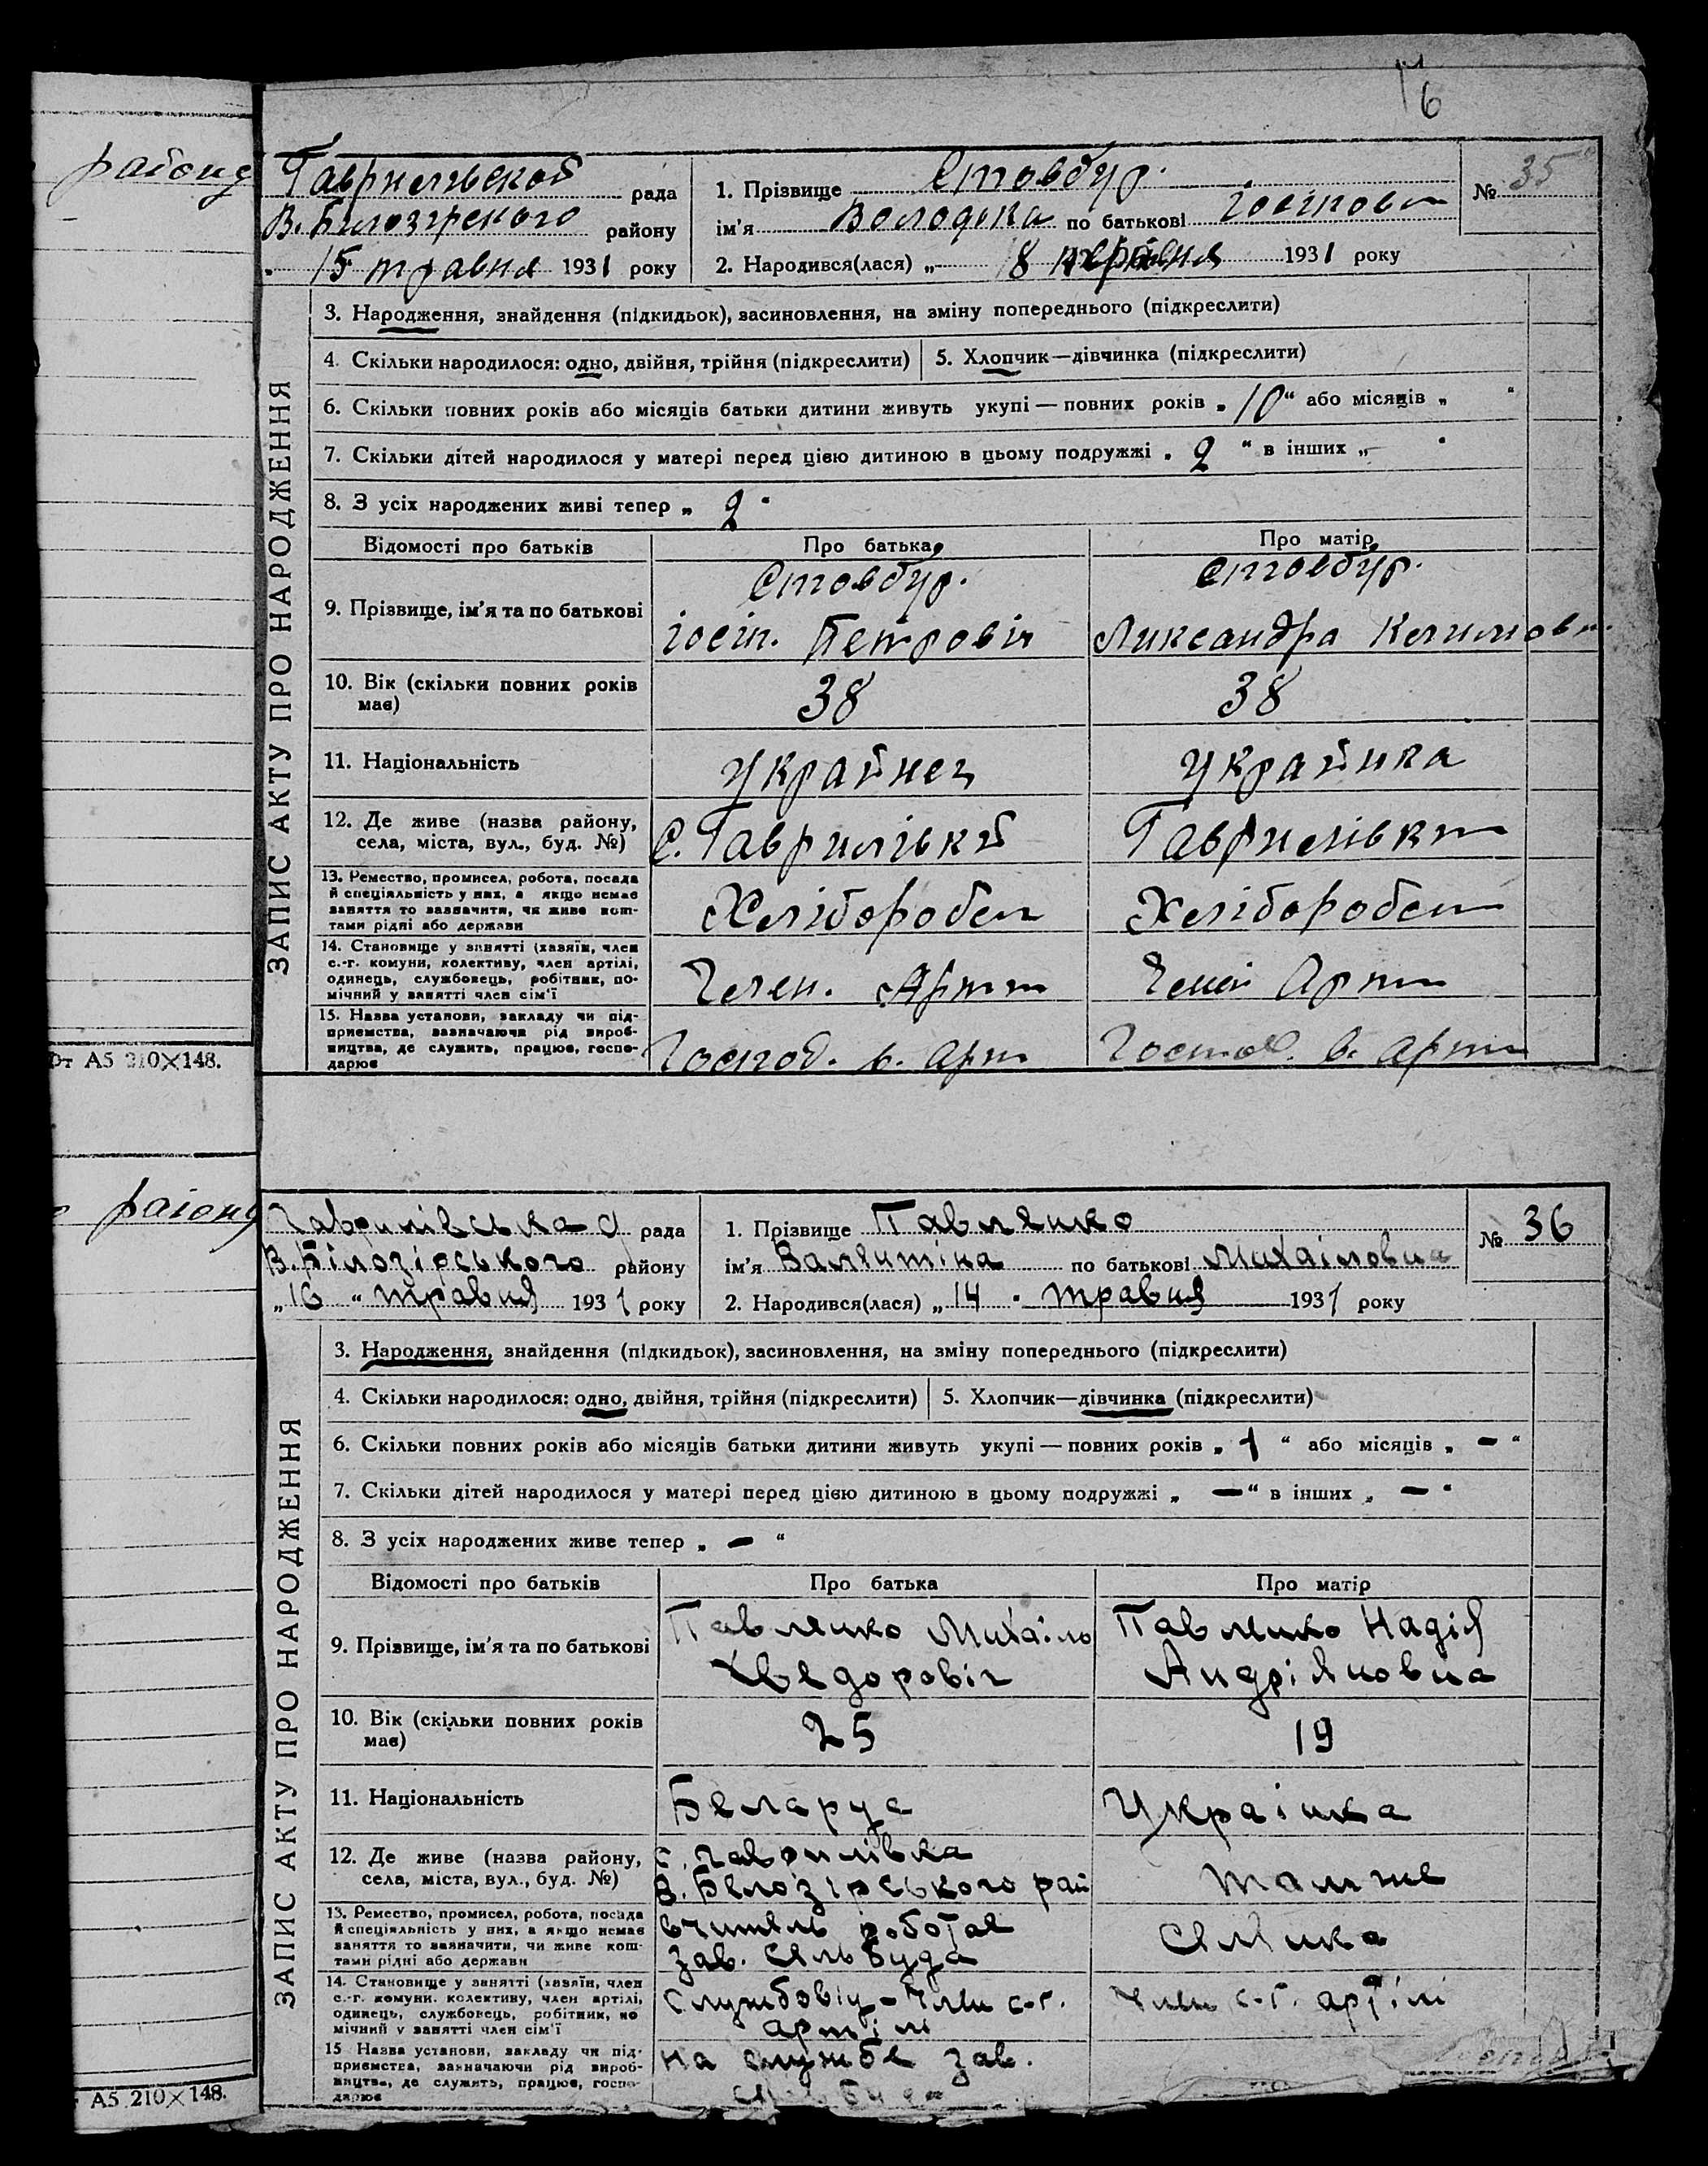 6
району
Гаврилівської рада
В. Білозірского району
15 травня 1931 року
1. Прізвище Стовбур.
ім'я Володька по батькові Госіпов
2. Народився(лася) „ 8 1931 року
№ 35
ЗАПИС АКТУ ПРО НАРОДЖЕННЯ
3. Народження, знайдення (підкидьок), засиновлення, на зміну попереднього (підкреслити)
4. Скільки народилося: одно, двійня, трійня (підкреслити)
5. Хлопчик—дівчинка (підкреслити)
6. Скільки повних років або місяців батьки дитини живуть укупі — повних років „ 10 “ або місяців „ “
7. Скільки дітей народилося у матері перед цією дитиною в цьому подружжі „ 2 “ в інших „ “
8. З усіх народжених живі тепер „ 2 “
Відомості про батьків
Про батька
Про матір
9. Прізвище, ім'я та по батькові
Стовбур.
Іосіп. Петровіч
Стовбур.
Александра Климовн.
10. Вік (скільки повних років
має)
38
38
11. Національність
Украйнец
Украйнка
12. Де живе (назва району,
села, міста, вул., буд. №)
С. Гаврилівкй
Гаврилівки
13. Ремество, промисел, робота, посада
й спеціяльність у них, а якщо немає
заняття то зазначити, чи живе кош-
тами рідні або держави
Хліборобец
Хлібороб
14. Становище у занятті (хазяїн, член
с.-г. комуни, колективу, член артілі,
одинець, службовець, робітник, по-
мічний у занятті член сім'ї
Член. Арт
Член Арт
15. Назва установи, закладу чи під-
приємства, зазначаючи рід вироб-
ництва, де служить, працює, госпо-
дарює
Господ. в. арт
Господ. в. арт
от А5 210×148.
району
Гаврилівська с/ рада
В. Білозірського району
„16“ травня 1931 року
1. Прізвище Павленко
ім'я Валентіна по батькові Михаіловна
2. Народився(лася) „14 “ травня 1931 року
№ 36
ЗАПИС АКТУ ПРО НАРОДЖЕННЯ
3. Народження, знайдення (підкидьок), засиновлення, на зміну попереднього (підкреслити)
4. Скільки народилося: одно, двійня, трійня (підкреслити)
5. Хлопчик—дівчинка (підкреслити)
6. Скільки повних років або місяців батьки дитини живуть укупі — повних років „ 1 “ або місяців „ — “
7. Скільки дітей народилося у матері перед цією дитиною в цьому подружжі „ — “ в інших „ — “
8. З усіх народжених живе тепер „ — “
Відомості про батьків
Про батька
Про матір
9. Прізвище, ім'я та по батькові
Павленко Михаіло
Хведоровіч
Павленко Надія
Андріяновна
10. Вік (скільки повних років
має)
25
19
11. Національність
Беларус
Украінка
12. Де живе (назва району,
села, міста, вул., буд. №)
с. Гаврилівка
В. Белозірського рай
там же
13. Ремество, промисел, робота, посада
й спеціяльність у них, а якщо немає
заняття то зазначити, чи живе кош-
тами рідні або держави
вчитель роботає
зав. сельбуда
14. Становище у занятті (хазяїн, член
с.-г. комуни. колективу, член артілі,
одинець, службовець, робітник, по
мічний у занятті член сім'ї
Службовіц – Член с-г.
артілі
Член с-г. артілі
15 Назва установи, закладу чи під-
приємства, зазначаючи рід вироб-
ництва, де служить, працює, госпо-
дарює
на службе зав.
сельбуда
А5 210×148.